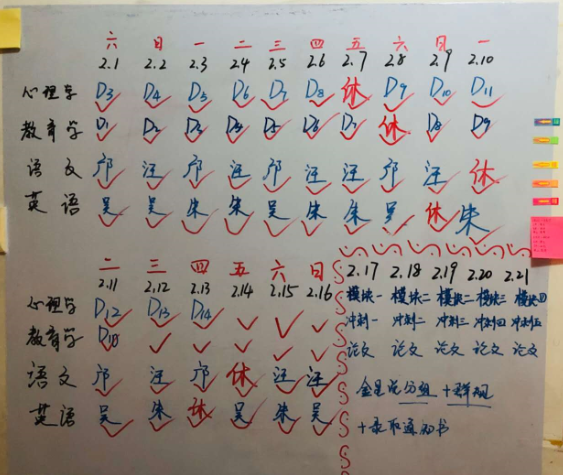 六 日 一 二 三 四 五 六 日 一
2.1 2.2 2.3 2.4 2.5 2.6 2.7 2.8 2.9 2.10
心理学 D3 D4 D5 D6 D7 D8 休 D9 D10 D11
教育学 D1 D2 D3 D4 D5 D6 D7 休 D8 D9
语文 邝 汪 邝 汪 邝 汪 汪 邝 汪 休
英语 吴 吴 朱 朱 吴 朱 朱 吴 休 朱
二 三 四 五 六 日
2.11 2.12 2.13 2.14 2.15 2.16
心理学 D12 D13 D14
教育学 D10
语文 邝 汪 邝 休 汪 汪
英语 吴 朱 休 吴 朱 吴
2.17 2.18 2.19 2.20 2.21
模块一 模块二 模块二 模块三 模块四
冲刺一 冲刺二 冲刺三 冲刺四 冲刺五
论文 论文 论文 论文 论文
说分组
+录取通知书